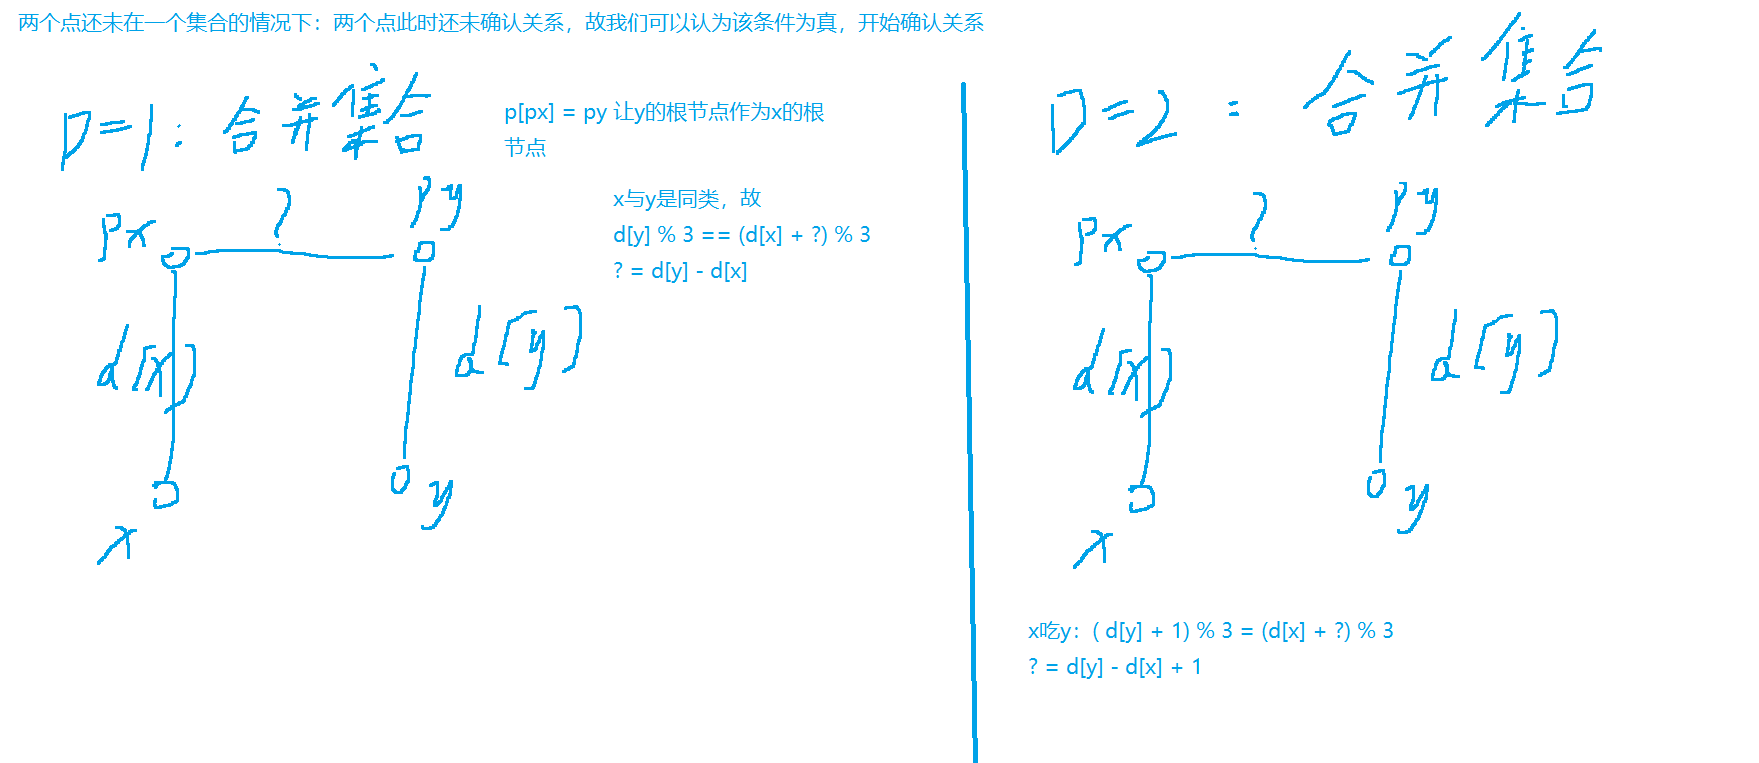 两个点还未在一个集合的情况下：两个点此时还未确认关系，故我们可以认为该条件为真，开始确认关系
D=1：合并集合
p[px] = py 让y的根节点作为x的根
节点
px
?
py
x与y是同类，故
d[y] % 3 == (d[x] + ?) % 3
? = d[y] - d[x]
d[x]
d[y]
x
y
D=2：合并集合
px
?
py
d[x]
d[y]
x
y
x吃y：( d[y] + 1) % 3 = (d[x] + ?) % 3
? = d[y] - d[x] + 1